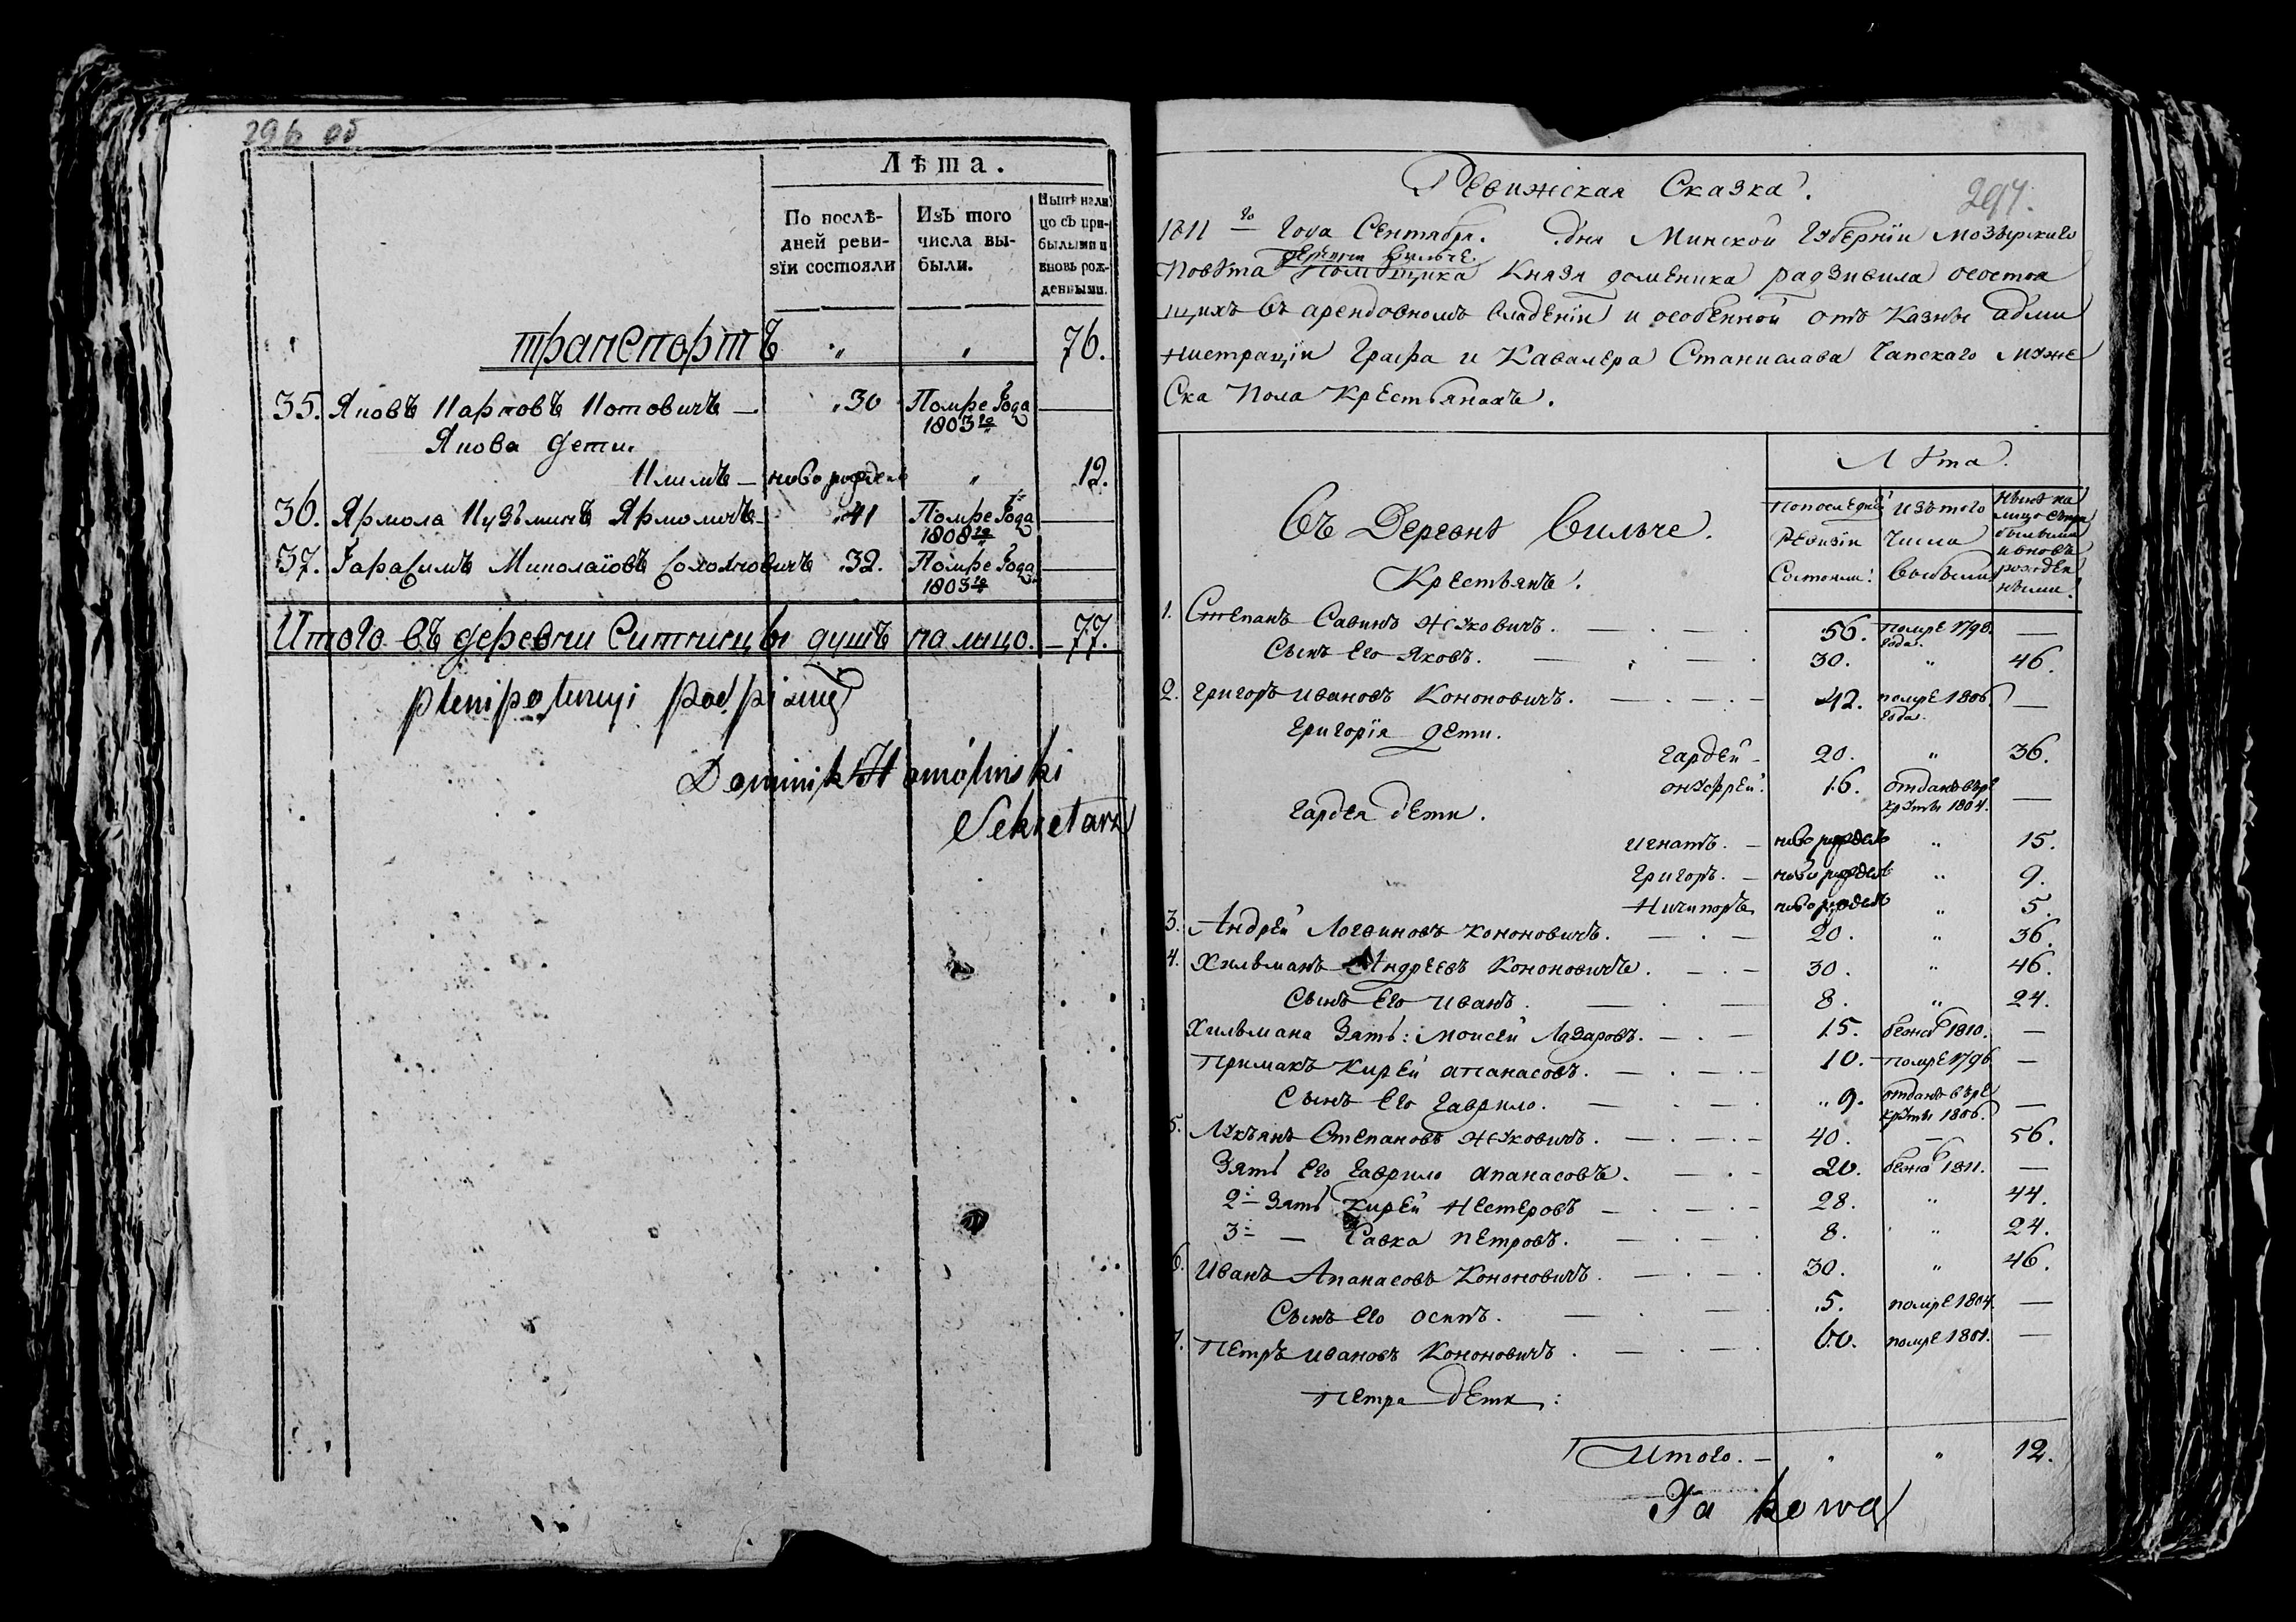 296 об
Лѣта.
По послѣ-
дней реви-
зіи состояли
Изъ того
числа вы-
были.
Нынѣ нали
цо съ при-
былыми и
вновь рож-
денными.
транспортъ „ „ 76.
35. Яковъ Карповъ Котовичъ — „30 Помре Года —
1803го
Якова дети
Климъ — новорожденъ „ 12.
36. Ярмола Кузьминъ Ярмоличъ „41 Помре Года —
1808го
37. Гарасимъ Миколаіовъ 32. Помре Года —
1803го
Итого въ деревни Ситницы душъ на лицо. — 77.
plenipotencyi podpisuję
Dominik
Sekretarz
297.
Ревижская Сказка.
1811го Года Сентября. дня Минской Губерніи Мозырскаго
деревни Вильче.
Повѣта Помѣщика Князя доменика радзивила осостоя
щихъ въ арендовномъ владеніи и особенной отъ Казны адми
нистраціи Графа и Кавалера Станислава Чапскаго муже
Ска Пола Крестьянахъ.
Лѣта.
Въ Деревнѣ Вильче.
Крестьянъ.
Попоследней
Ревизіи
Состояли.
изътого
Числа
Выбыли
Нынѣ на
лицо съпри
былыми
ивновь
рожден
ными.
1. Степанъ Савинъ Жуковичъ. — . — . 56. Помре 1798. —
года.
Сынъ Его Яковъ. — . — . 30. „ 46.
2. Григоръ Ивановъ Кононовичъ. — . — . — 42. помре 1806. —
года.
Григорія дети.
Гардей — 20. „ 36.
Онуфрей. 16. отданъ въре —
круты 1804.
Гардея дети.
Игнатъ. — новорожденъ „ 15.
Григоръ. — новорожденъ „ 9.
Ничипоръ новорожденъ „ 5.
3. Андрей Логвиновъ Кононовичъ. — . — 20. „ 36.
4. Хильманъ Андреевъ Кононовичъ. — . — 30. „ 46.
Сынъ Его Иванъ. — . — 8. „ 24.
Хильмана Зять: Моисей Лазаровъ. — . — 15. бежа 1810. —
Примакъ Кирей Апанасовъ. — . — . — 10. помре 1796 —
Сынъ Его Гаврило. — . — . „ 9. отданъ въре —
круты 1806.
5. Лукьянъ Степановъ Жуковичъ. — . — . — 40. — 56.
Зять Его Гаврило Апанасовъ. — . 20. бежа 1811. —
2й Зять Кирей Нестеровъ — . — . — 28. „ 44.
3й — Савка Петровъ. — . — . 8. „ 24.
6. Иванъ Апанасовъ Кононовичъ. — . — . 30. „ 46.
Сынъ Его Осипъ. — . — . 5. помре 1804. —
7. Петръ Ивановъ Кононовичъ. — . — . 60. помре 1801. —
Петра дети:
Итого. — „ „ 12.